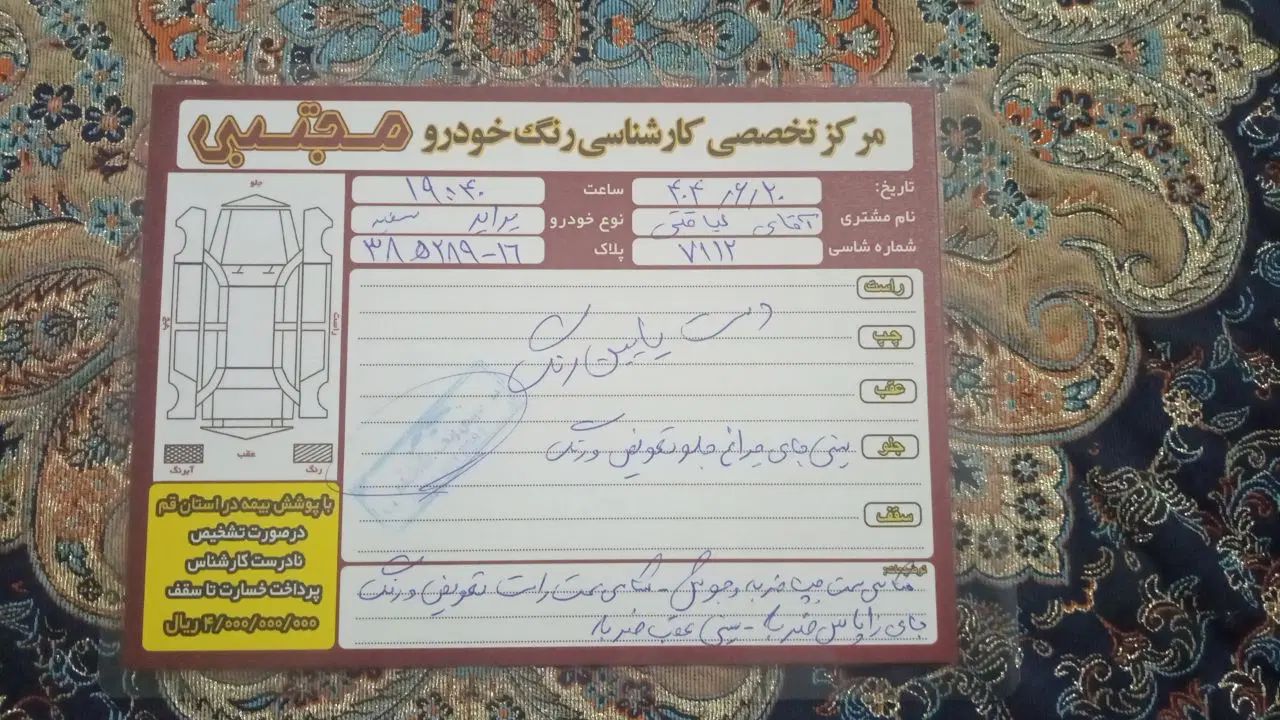 مرکز تخصصی کارشناسی رنگ خودرو مجتبی
تاریخ: ۴۰۴/۶/۲۰ ساعت ۱۹:۴۰
نام مشتری آقای نوع خودرو پراید سفید
شماره شاسی ۷۱۱۲ پلاک ۳۸ ۲۸۹-۱۶
جلو
راست
چپ
عقب
رنگ
آبرنگ
راست
دست پایین رنگ
چپ
عقب
جلو
سینی جای چراغ جلو تعویض و رنگ
سقف
توضیحات:
شاسی سمت چپ ضربه و جوش - شاسی سمت راست تعویض و رنگ
جای زاپاس ضربه - سینی عقب ضربه
با پوشش بیمه در استان قم
درصورت تشخیص
نادرست کارشناس
پرداخت خسارت تا سقف
۴/۰۰۰/۰۰۰/۰۰۰ ریال